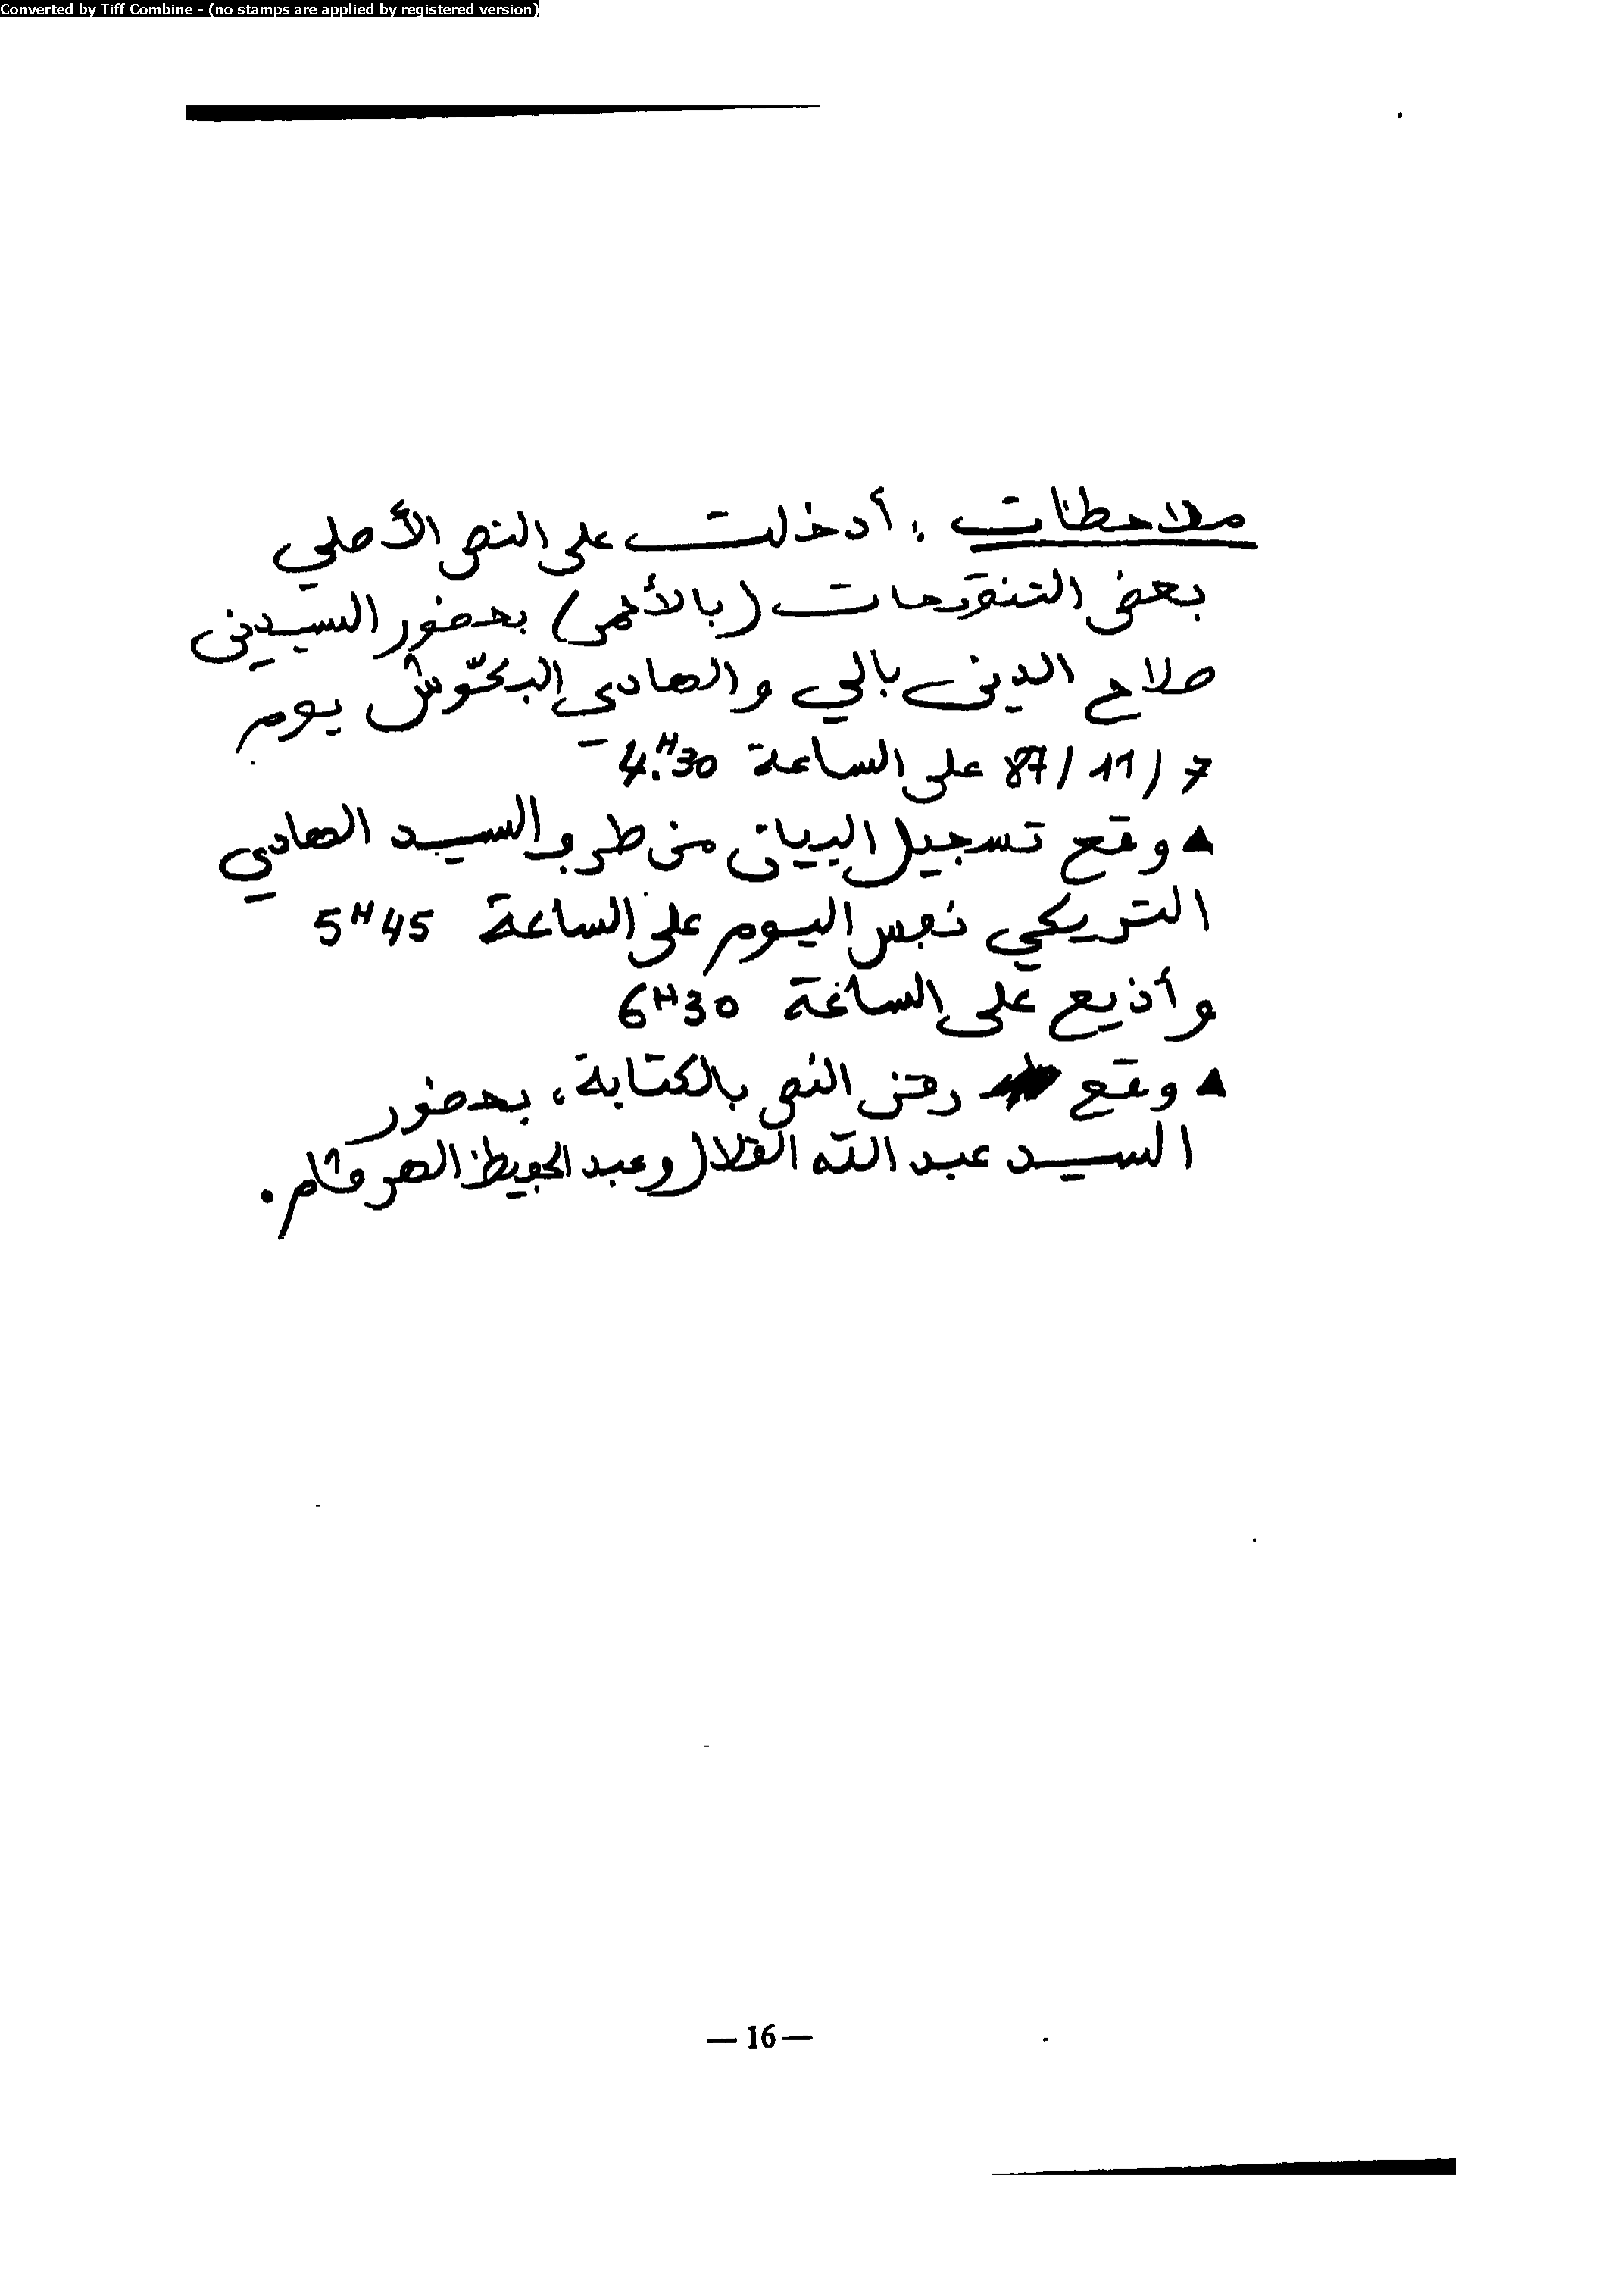 Converted by Tiff Combine - (no stamps are applied by registered version)
ملاحظات : أدخلت على النص الأصلي
بعض التنقيحات (بالأحمر) بحضور السيدين
صلاح الدين بالي والهادي البكّوش يوم
7 / 11 / 87 على الساعة 4H30
▲ وقع تسجيل البيان من طرف السيد الهادي
التريكي نفس اليوم على الساعة 5H45
وأذيع على الساعة 6H30
▲ وقع رقن النص بالكتابة، بحضور
السيد عبد الله القلال وعبد الحفيظ الهرقام.
— 16 —